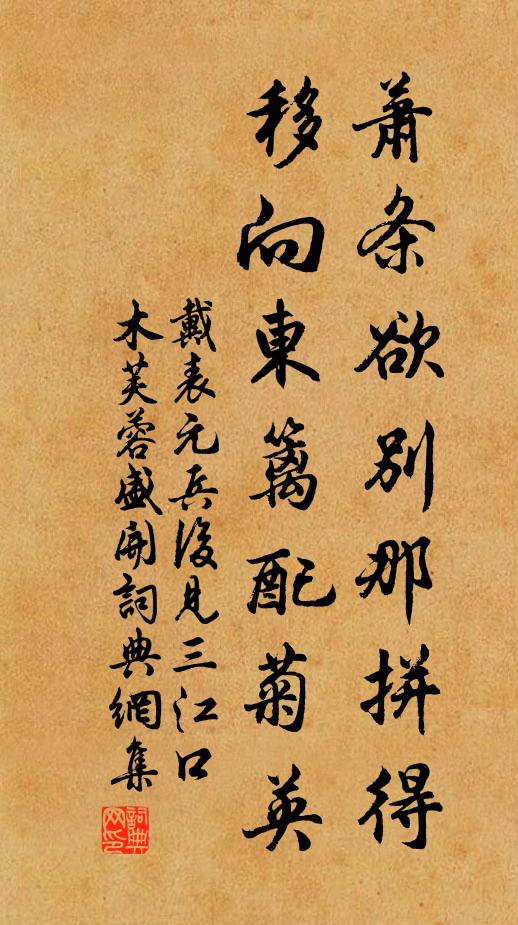 蕭条欲別那拼得
移向東籬配菊英
戴表元兵後見三江口
木芙蓉盛開詞典網集
詞典网印